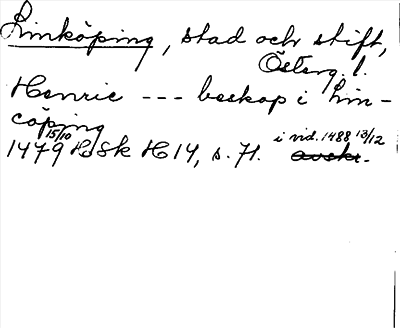 Linköping, stad och stift,
Österg. l.
Henric --- beskop i Lin-
cöping
1479 15/10 HSk H 14, s. 71. i vid. 1488 13/12 avskr.